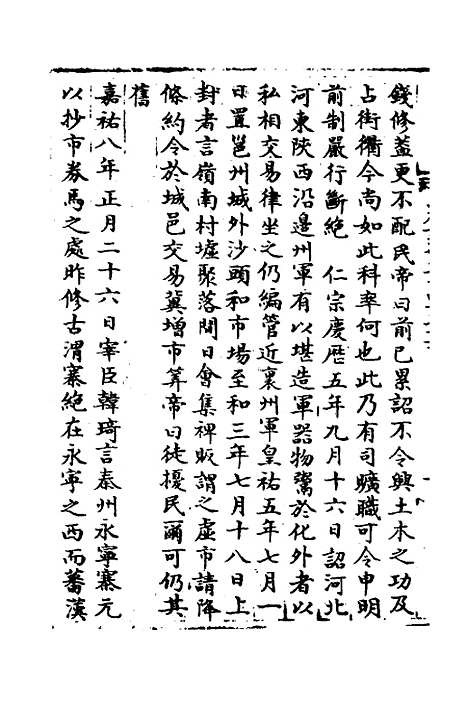 錢修蓋更不配民帝曰前已累詔不令興土木之功及
占街衢今尚如此科率何也此乃有司曠職可令申明
前制嚴行斷絕　仁宗慶曆五年九月十六日詔河北
河東陝西沿邊州軍有以堪造軍器物鬻於化外者以
私相交易律坐之仍編管近裏州軍皇祐五年七月一
日置邕州城外沙頭和市場至和三年七月十八日上
封者言嶺南村墟聚落間日會集裨販謂之虛市請降
條約令於城邑交易冀增市筭帝曰徒擾民爾可仍其
舊
嘉祐八年正月二十六日宰臣韓琦言秦州永寧寨元
以抄市券馬之處昨修古渭寨絕在永寧之西而蕃漢